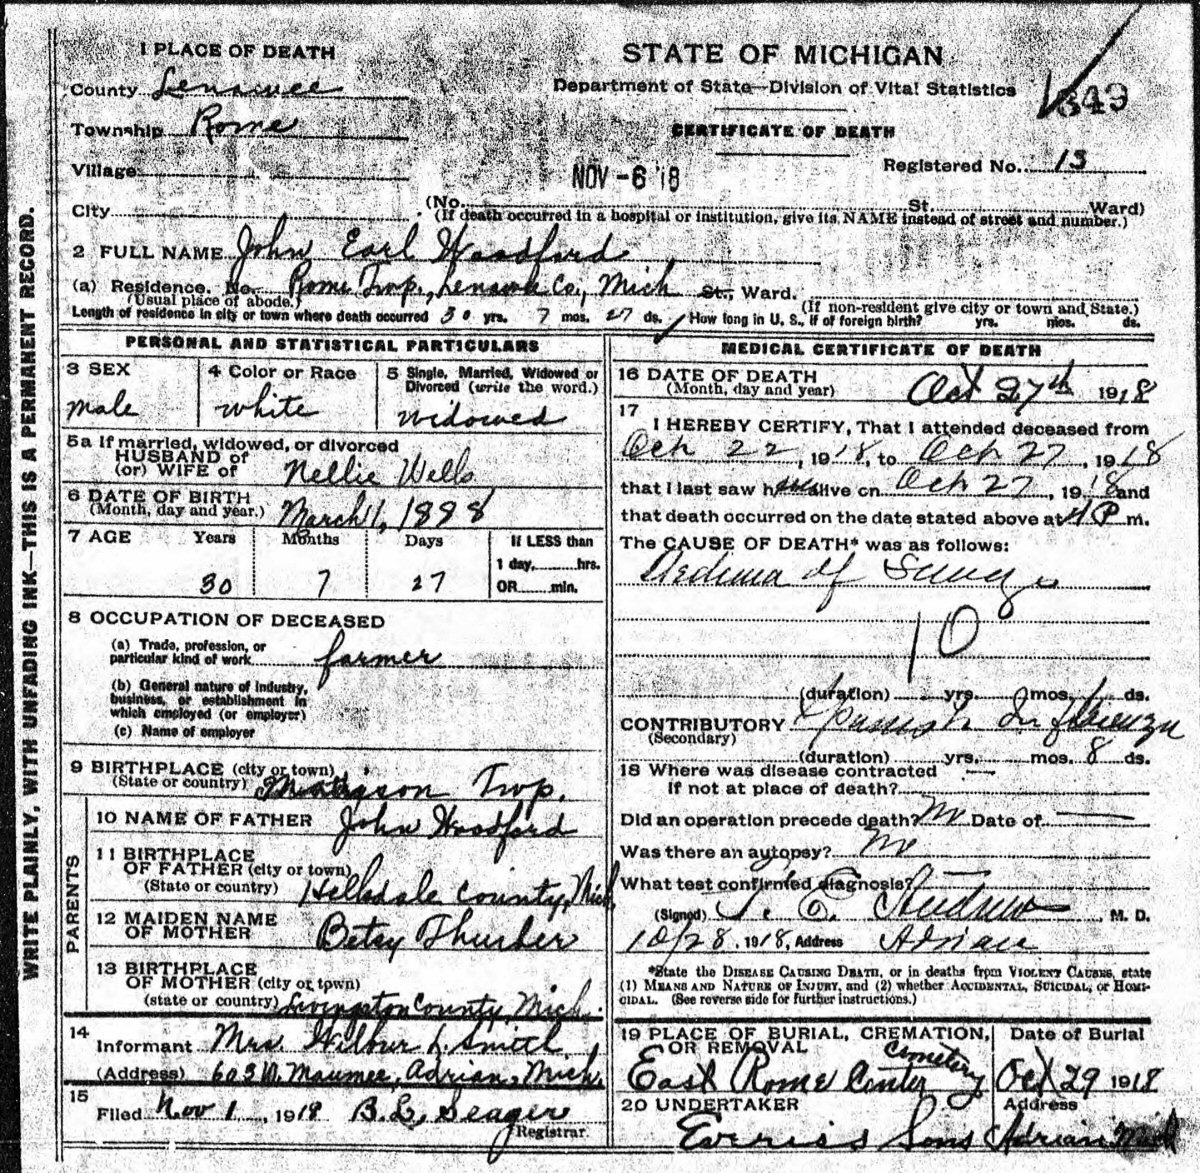 WRITE PLAINLY, WITH UNFADING INK—THIS IS A PERMANENT RECORD.
1 PLACE OF DEATH
County Lenawee
Township Rome
Village
City
STATE OF MICHIGAN
Department of State—Division of Vital Statistics
CERTIFICATE OF DEATH
349
Registered No. 13
NOV -6 '18
(No. St. Ward)
(If death occurred in a hospital or institution, give its NAME instead of street and number.)
2 FULL NAME John Earl Woodford
(a) Residence. No. Rome Twp., Lenawee Co., Mich St., Ward.
(Usual place of abode.) (If non-resident give city or town and State.)
Length of residence in city or town where death occurred 30 yrs. 7 mos. 27 ds. How long in U. S., if of foreign birth? yrs. mos. ds.
PERSONAL AND STATISTICAL PARTICULARS
3 SEX
male
4 Color or Race
white
5 Single, Married, Widowed or
Divorced (write the word.)
widowed
5a If married, widowed, or divorced
HUSBAND of
(or) WIFE of Nellie Wells
6 DATE OF BIRTH
(Month, day and year.) March 1, 1888
7 AGE Years Months Days
30 7 27
If LESS than
1 day, hrs.
OR min.
8 OCCUPATION OF DECEASED
(a) Trade, profession, or
particular kind of work farmer
(b) General nature of industry,
business, or establishment in
which employed (or employer)
(c) Name of employer
9 BIRTHPLACE (city or town)
(State or country) Twp.
PARENTS
10 NAME OF FATHER John Woodford
11 BIRTHPLACE
OF FATHER (city or town)
(State or country) Hillsdale County, Mich.
12 MAIDEN NAME
OF MOTHER Betsy Thurber
13 BIRTHPLACE
OF MOTHER (city or town)
(state or country) Livingston County, Mich.
14
Informant Mrs Wilbur L. Smith
(Address) 603 W. Maumee, Adrian, Mich.
15
Filed Nov 1, 1918 B. L. Seager
Registrar.
MEDICAL CERTIFICATE OF DEATH
16 DATE OF DEATH
(Month, day and year) Oct 27th 1918
17
I HEREBY CERTIFY, That I attended deceased from
Oct 22, 1918, to Oct 27, 1918
that I last saw him alive on Oct 27, 1918 and
that death occurred on the date stated above at 4 P m.
The CAUSE OF DEATH* was as follows:
Aedima of Lungs
10
(duration) yrs. mos. 1 ds.
CONTRIBUTORY Spanish Influenza
(Secondary)
(duration) yrs. mos. 8 ds.
18 Where was disease contracted —
If not at place of death?
Did an operation precede death? No Date of —
Was there an autopsy? No
What test confirmed diagnosis? —
(Signed) E. Andrew M. D.
10/28, 1918, Address Adrian
*State the DISEASE CAUSING DEATH, or in deaths from VIOLENT CAUSES, state
(1) MEANS AND NATURE OF INJURY, and (2) whether ACCIDENTAL, SUICIDAL, or HOMI-
CIDAL. (See reverse side for further instructions.)
19 PLACE OF BURIAL, CREMATION,
OR REMOVAL
East Rome Center Cemetery
Date of Burial
Oct 29 1918
20 UNDERTAKER
Sons
Address
Adrian Mich